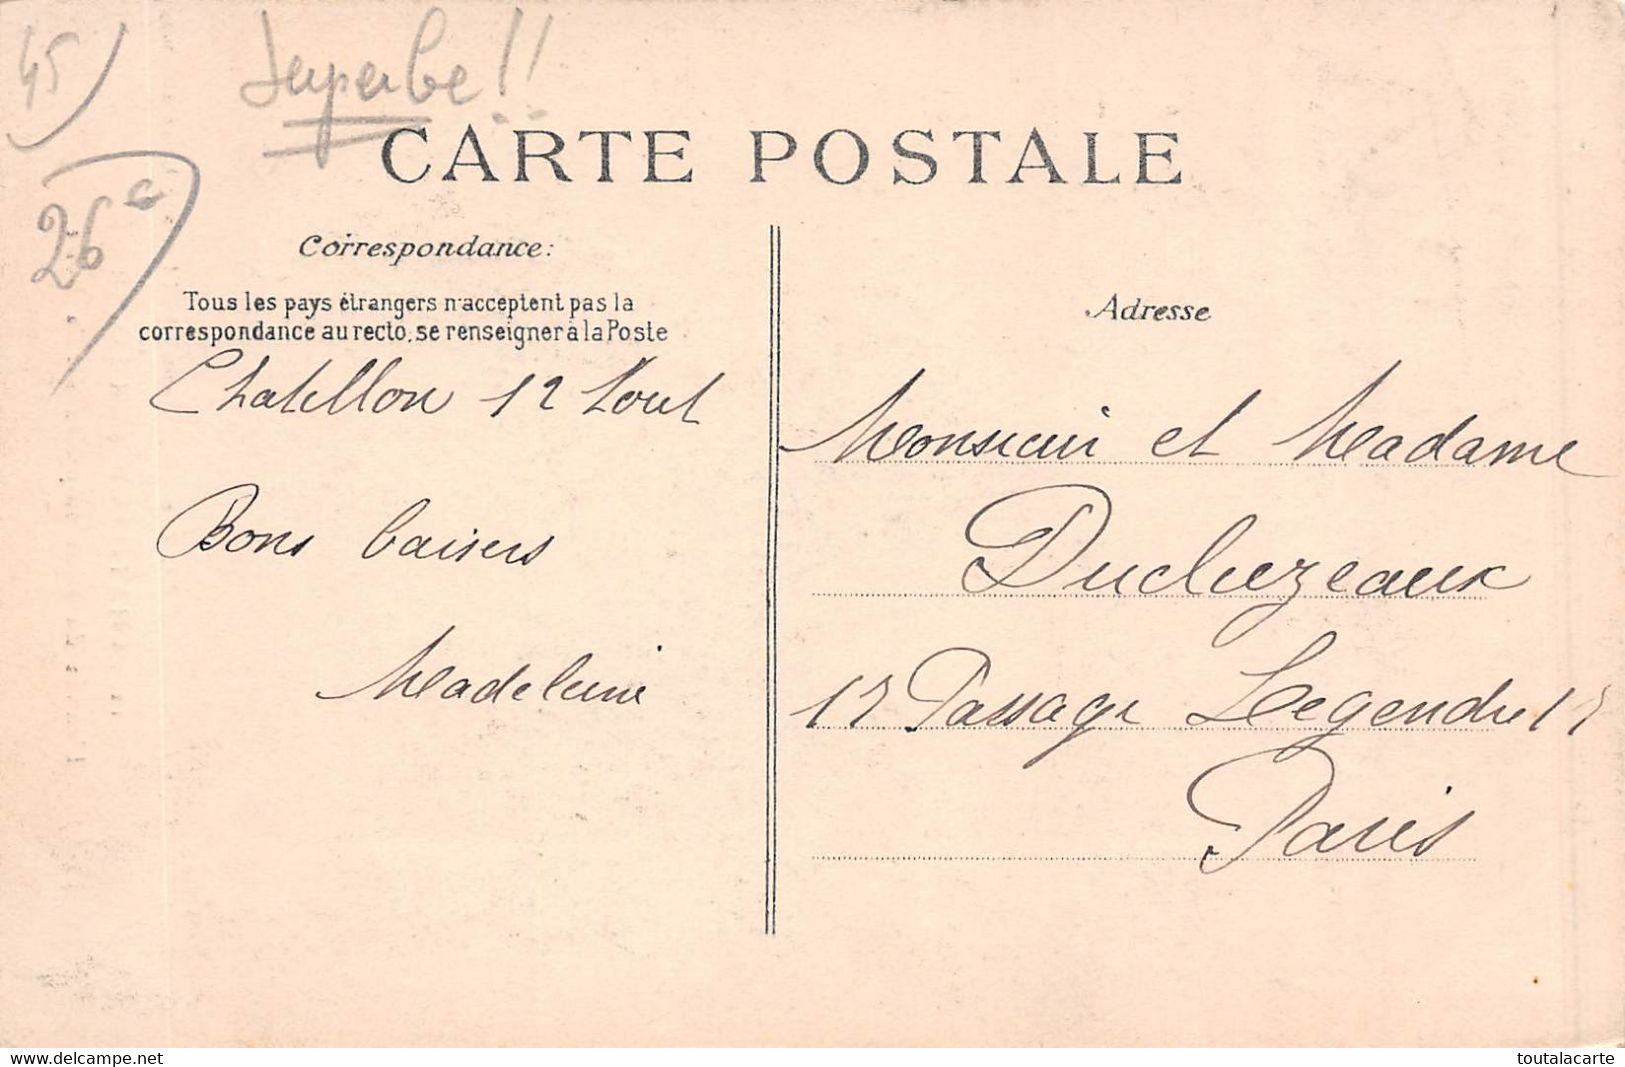 45
Superbe!!
26 €
CARTE POSTALE
Correspondance:
Tous les pays étrangers n'acceptent pas la
correspondance au recto, se renseigner à la Poste
Chatillon 12 Aout
Bons baisers
Madeleine
Adresse
Monsieur et Madame
Ducluzeaux
17 Passage Legendre 17
Paris
www.delcampe.net
toutalacarte